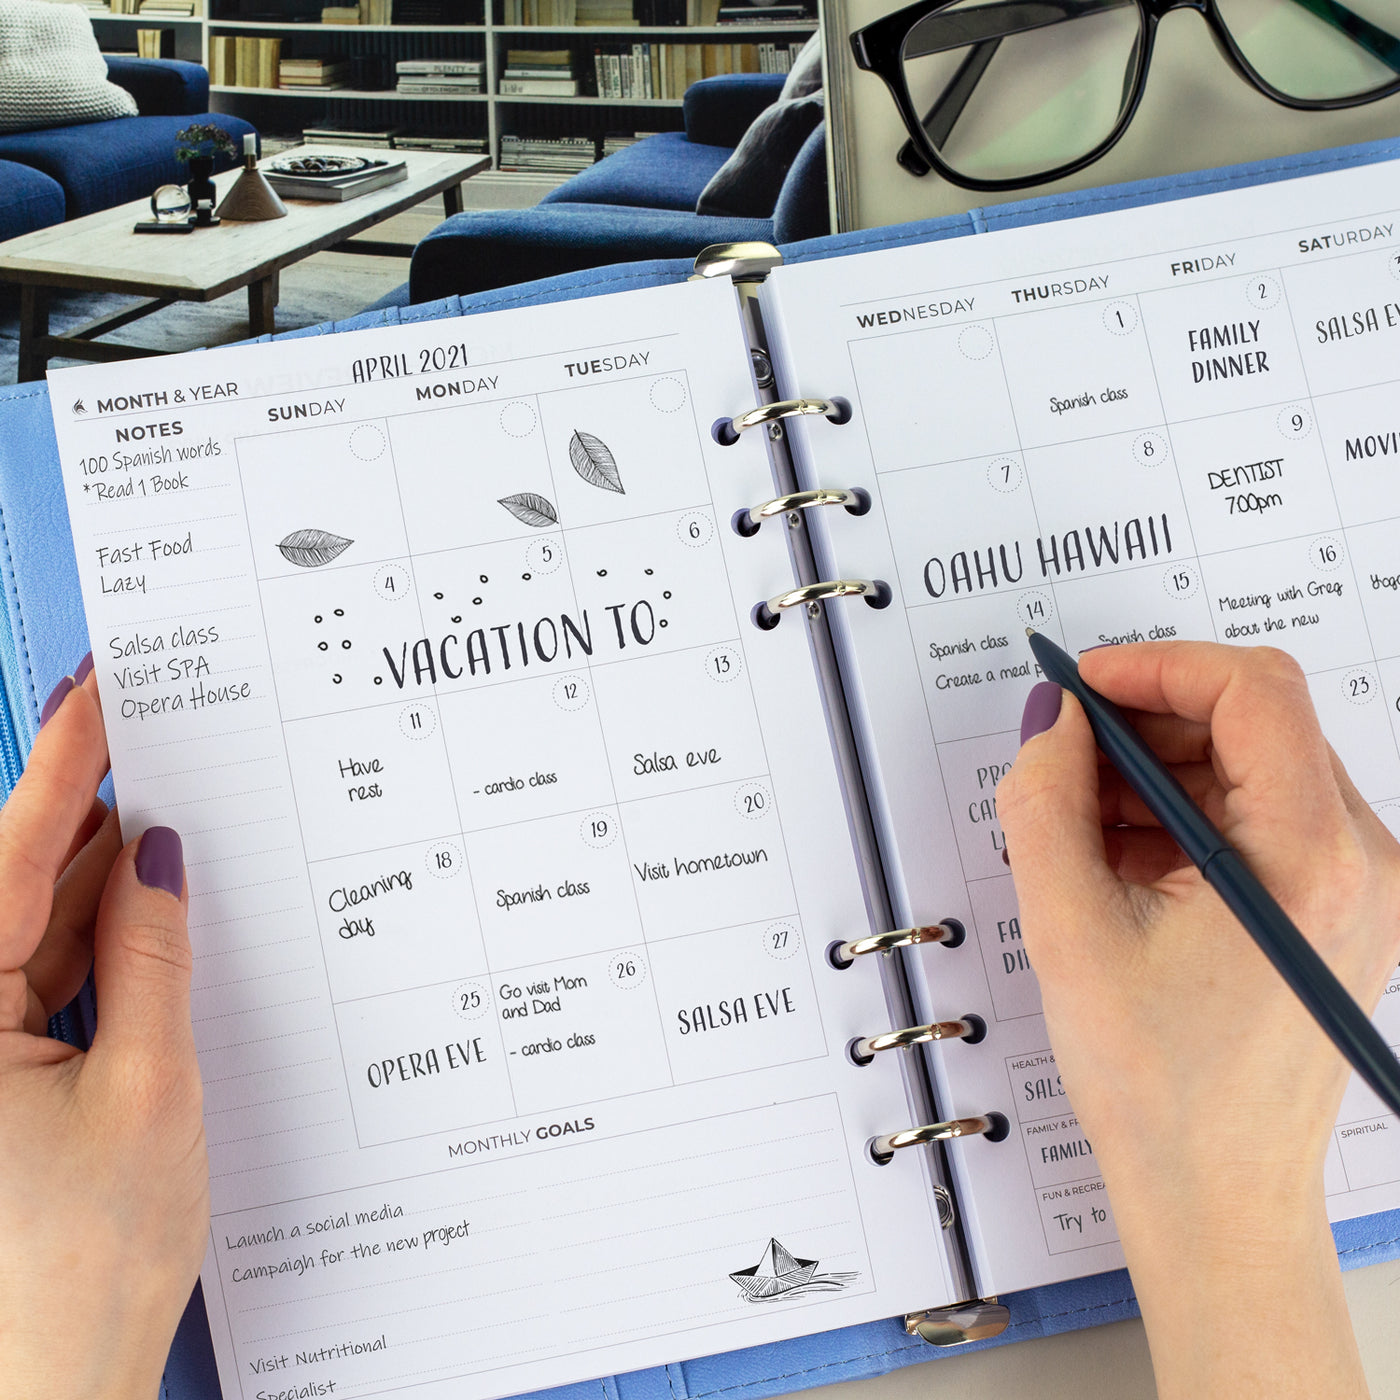 PLENTY
OTTOLENGHI
APRIL 2021
MONTH & YEAR
NOTES
100 Spanish words
*Read 1 Book
Fast Food
Lazy
Salsa class
Visit SPA
Opera House
SUNDAY
MONDAY
TUESDAY
4
5
6
VACATION TO
11
Have
rest
12
- cardio class
13
Salsa eve
18
Cleaning
day
19
Spanish class
20
Visit hometown
25
OPERA EVE
26
Go visit Mom
and Dad
- cardio class
27
SALSA EVE
MONTHLY GOALS
Launch a social media
Campaigh for the new project
Visit Nutritional
Specialist
WEDNESDAY
THURSDAY
FRIDAY
SATURDAY
1
Spanish class
2
FAMILY
DINNER
SALSA EV
7
8
OAHU HAWAII
9
DENTIST
7:00pm
MOVI
14
Spanish class
Create a meal p
15
Spanish class
16
Meeting with Greg
about the new
Yoga
PRO
CAM
L
23
FA
DI
HEALTH &
SALS
FAMILY & FR
FAMILY
FUN & RECREA
Try to
SPIRITUAL